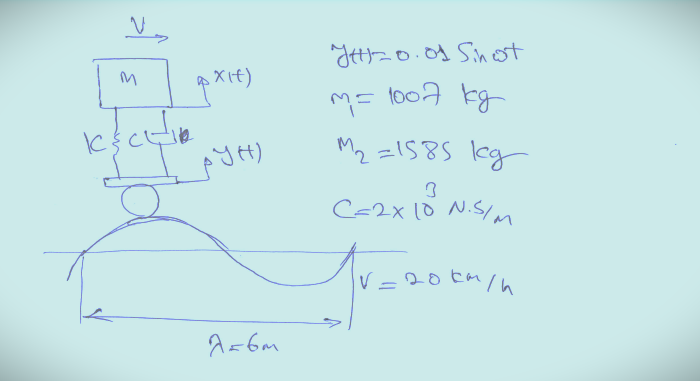 V
M
x(t)
K
C
y(t)
λ=6m
y(t)=0.01 Sin ωt
m₁= 1007 kg
M₂=1585 kg
C=2×10³ N.S/m
V=20 km/h